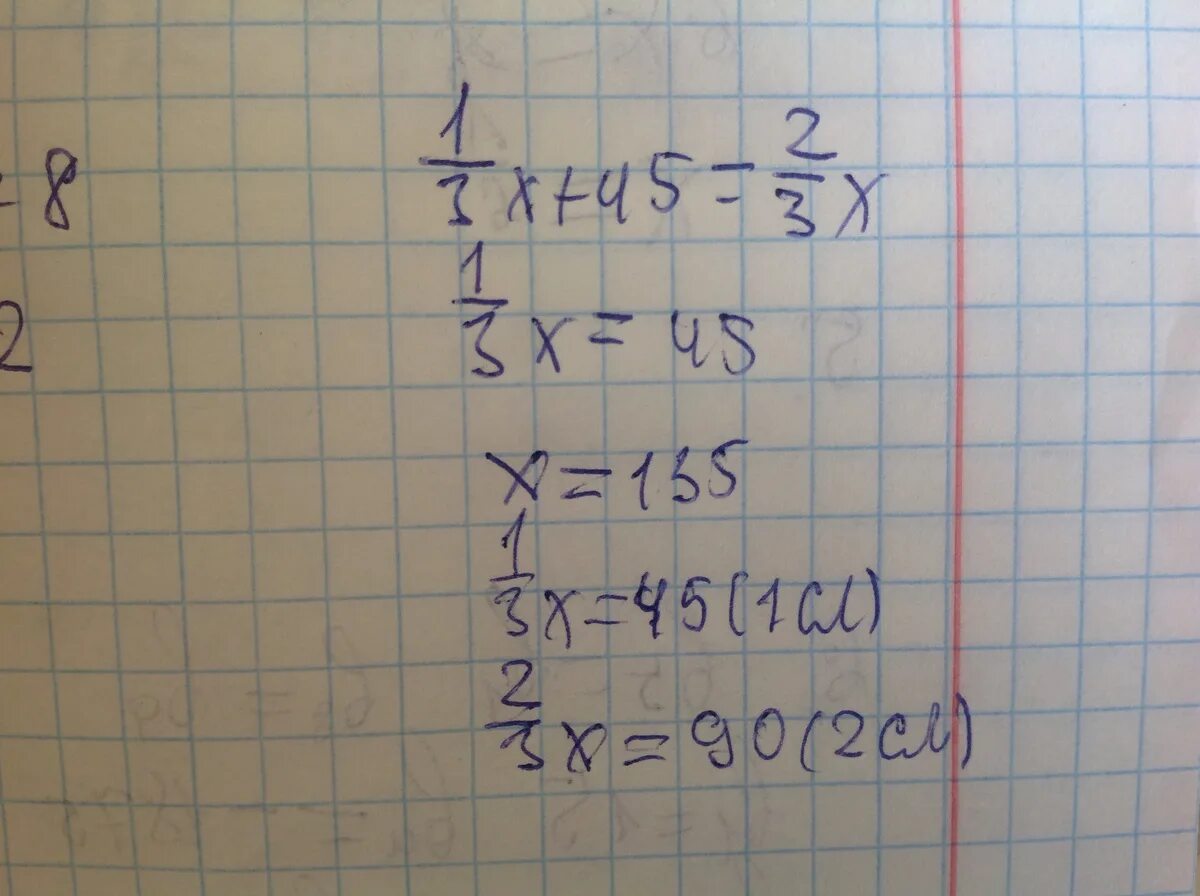 - 8
2
1/3 x + 45 = 2/3 x
1/3 x = 45
x = 135
1/3 x = 45 (1 сл)
2/3 x = 90 (2 сл)